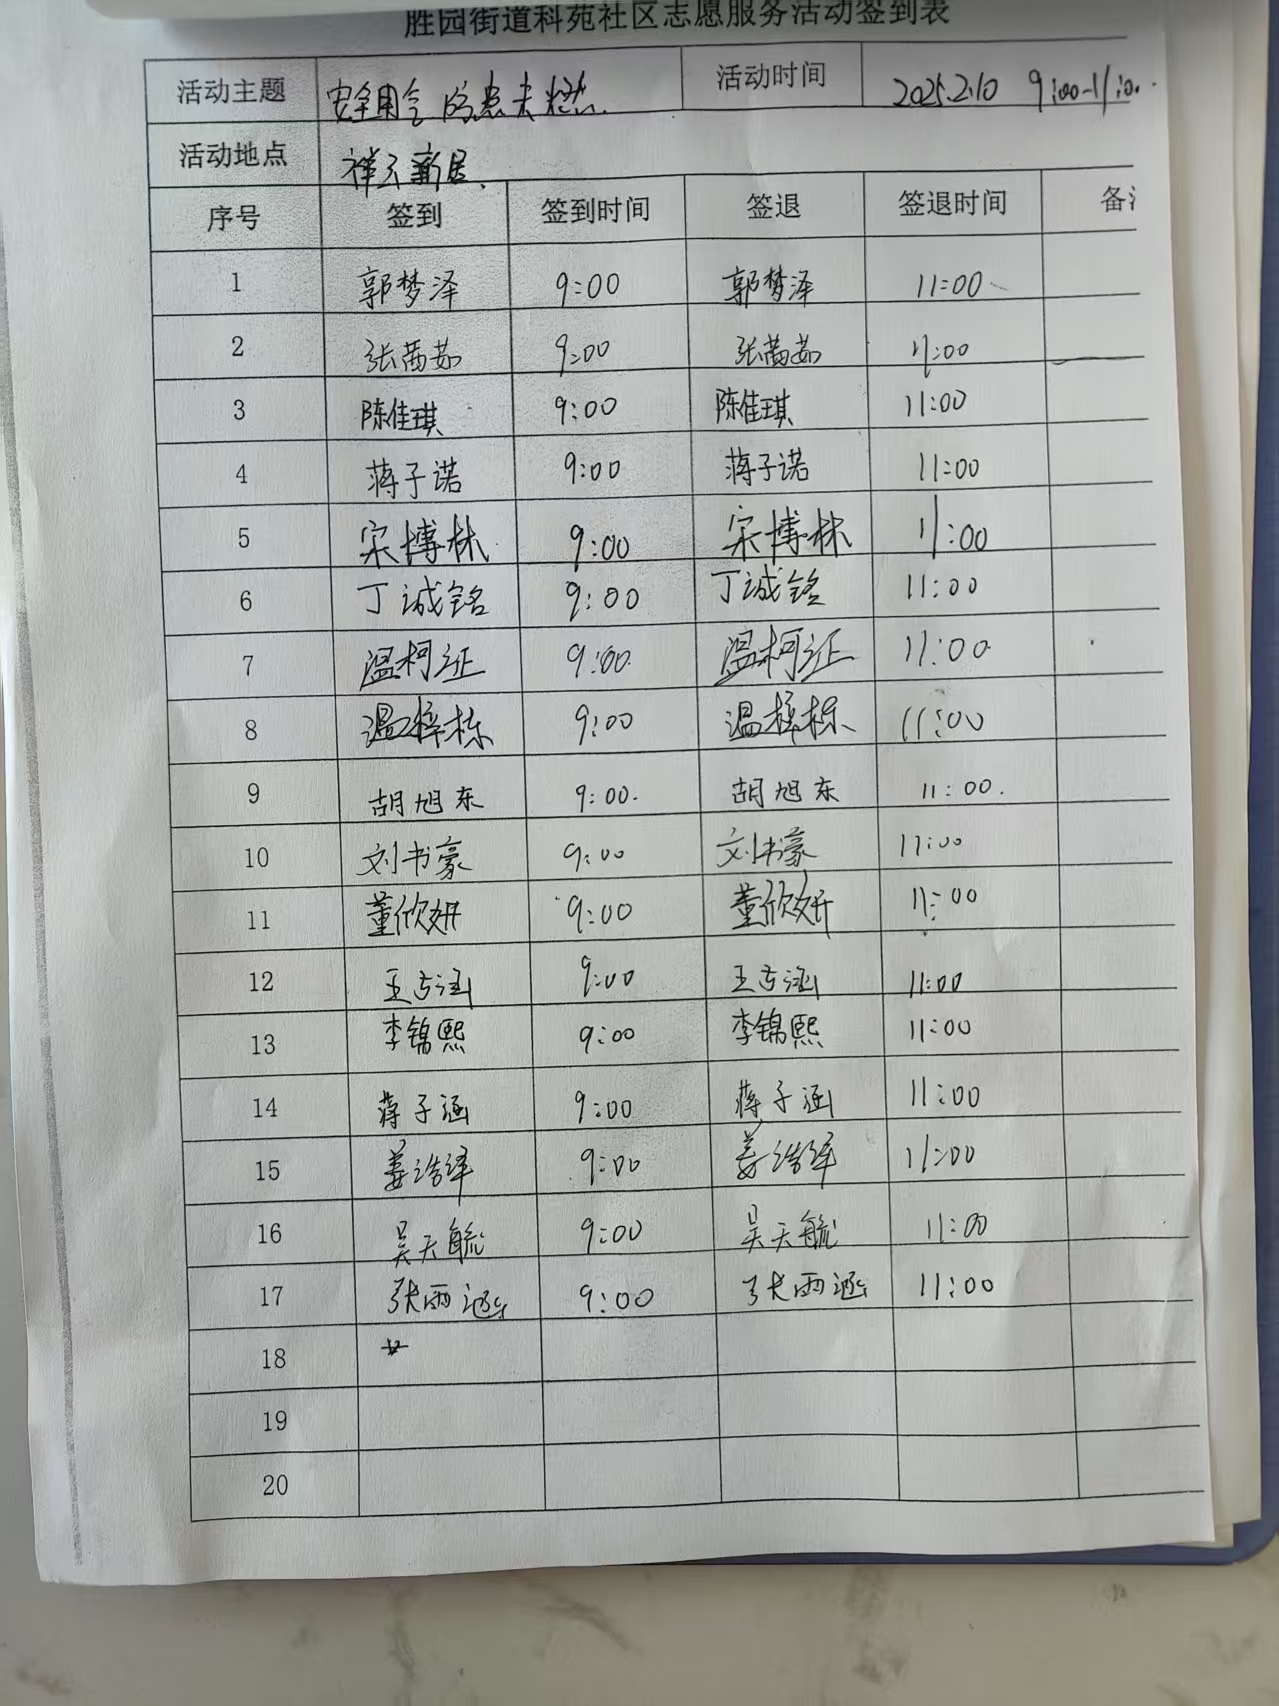 胜园街道科苑社区志愿服务活动签到表
活动主题 安全用气 防患未燃. 活动时间 2025.2.10 9:00-11:00.
活动地点 祥云新居.
序号 签到 签到时间 签退 签退时间 备注
1 郭梦泽 9:00 郭梦泽 11:00
2 张茜茹 9:00 张茜茹 11:00
3 陈佳琪 9:00 陈佳琪 11:00
4 蒋子诺 9:00 蒋子诺 11:00
5 宋博林 9:00 宋博林 11:00
6 丁诚铭 9:00 丁诚铭 11:00
7 温柯证 9:00 温柯证 11:00
8 温梓栋 9:00 温梓栋 11:00
9 胡旭东 9:00. 胡旭东 11:00.
10 刘书豪 9:00 刘书豪 11:00
11 董欣妍 9:00 董欣妍 11:00
12 9:00 11:00
13 李锦熙 9:00 李锦熙 11:00
14 蒋子涵 9:00 蒋子涵 11:00
15 姜浩泽 9:00 姜浩泽 11:00
16 吴天毓 9:00 吴天毓 11:00
17 张雨涵 9:00 张雨涵 11:00
18
19
20